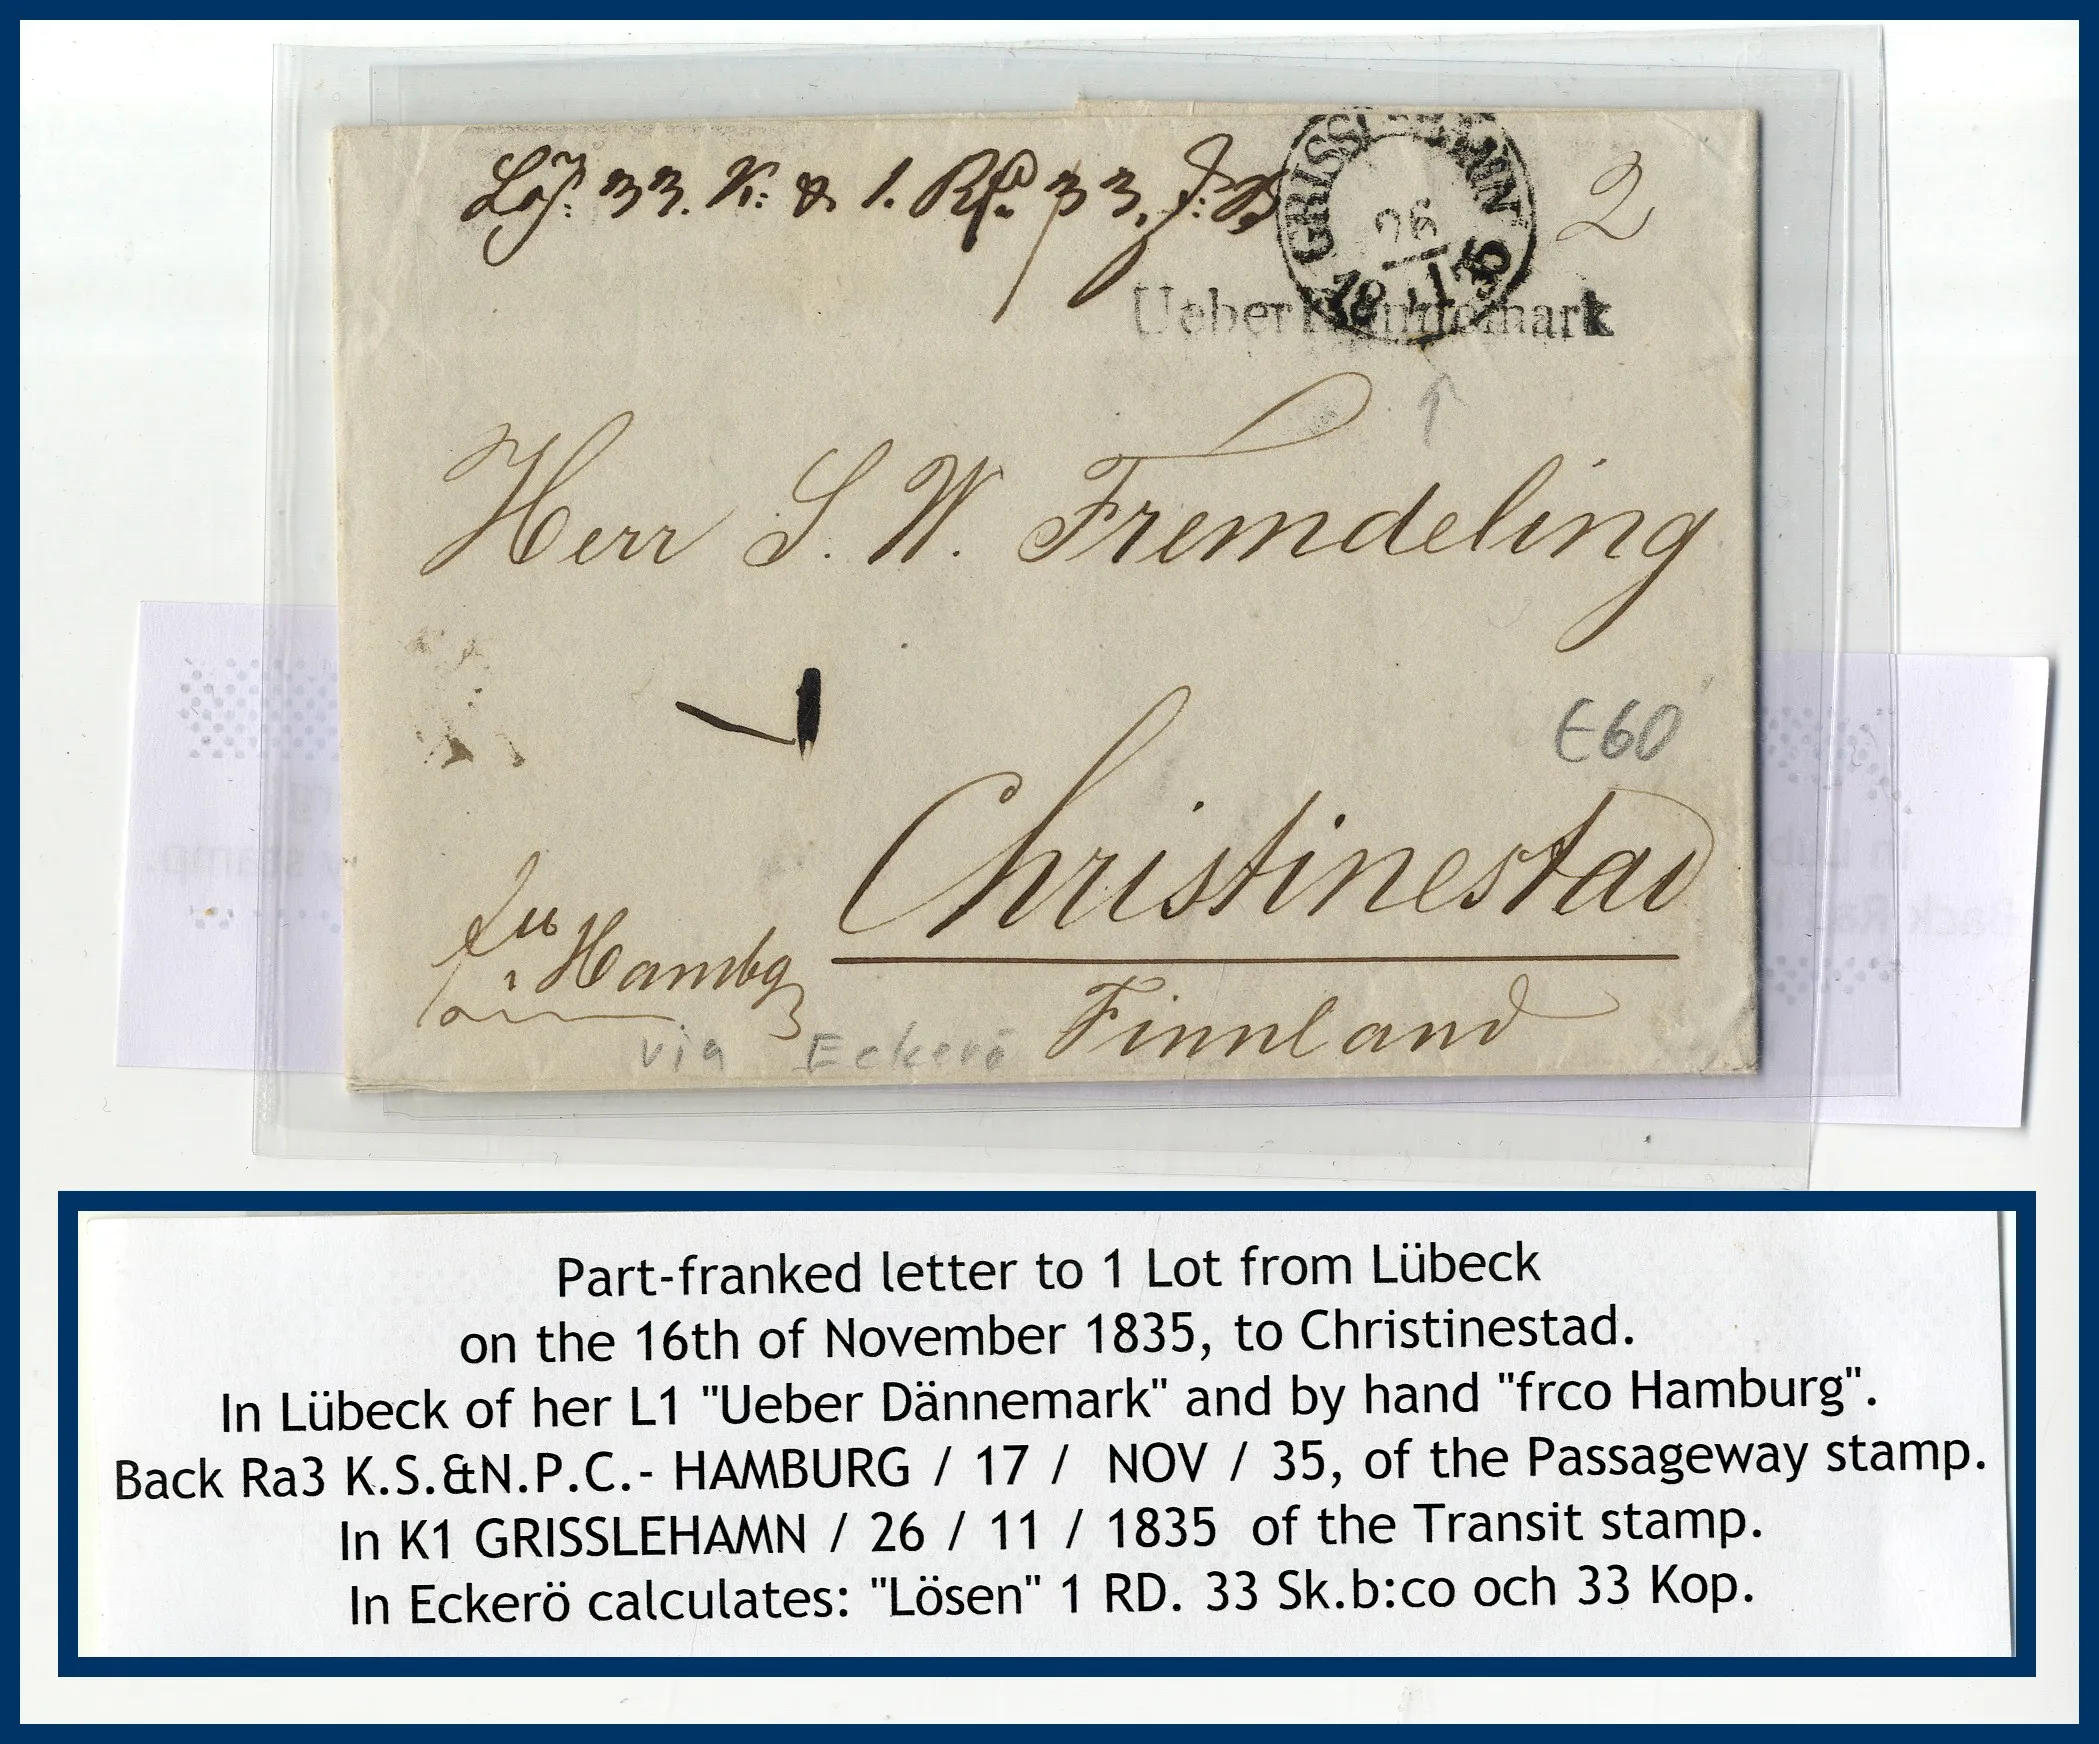 Lös: 33. K: & 1. Rd. 33. s: B
GRISSLEHAMN
26
11
18 35
2
Ueber Dännemark
Herr S. W. Fremdeling
E60
Christinestad
frco Hambg
via Eckerö Finnland
Part-franked letter to 1 Lot from Lübeck
on the 16th of November 1835, to Christinestad.
In Lübeck of her L1 "Ueber Dännemark" and by hand "frco Hamburg".
Back Ra3 K.S.&N.P.C.- HAMBURG / 17 / NOV / 35, of the Passageway stamp.
In K1 GRISSLEHAMN / 26 / 11 / 1835 of the Transit stamp.
In Eckerö calculates: "Lösen" 1 RD. 33 Sk.b:co och 33 Kop.